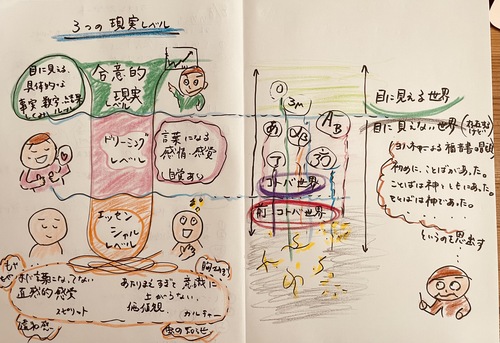 3つの現実レベル
目に見える、
具体的な
事実、数字、結果
合意的
現実
レベル
ドリーミング
レベル
言葉になる
感情・感覚
自覚あり
エッセン
シャル
レベル
まだ言葉になってない
直感的感覚
スピリット
違和感
あたりまえすぎて意識に
上がらない、
価値観
カルチャー
虫の知らせ
3m
あ
AB
コトバ世界
前コトバ世界
目に見える世界
目に見えない世界
ヨハネによる福音書の冒頭
初めに、ことばがあった。
ことばは神とともにあった。
ことばは神であった。
というのを思い出す